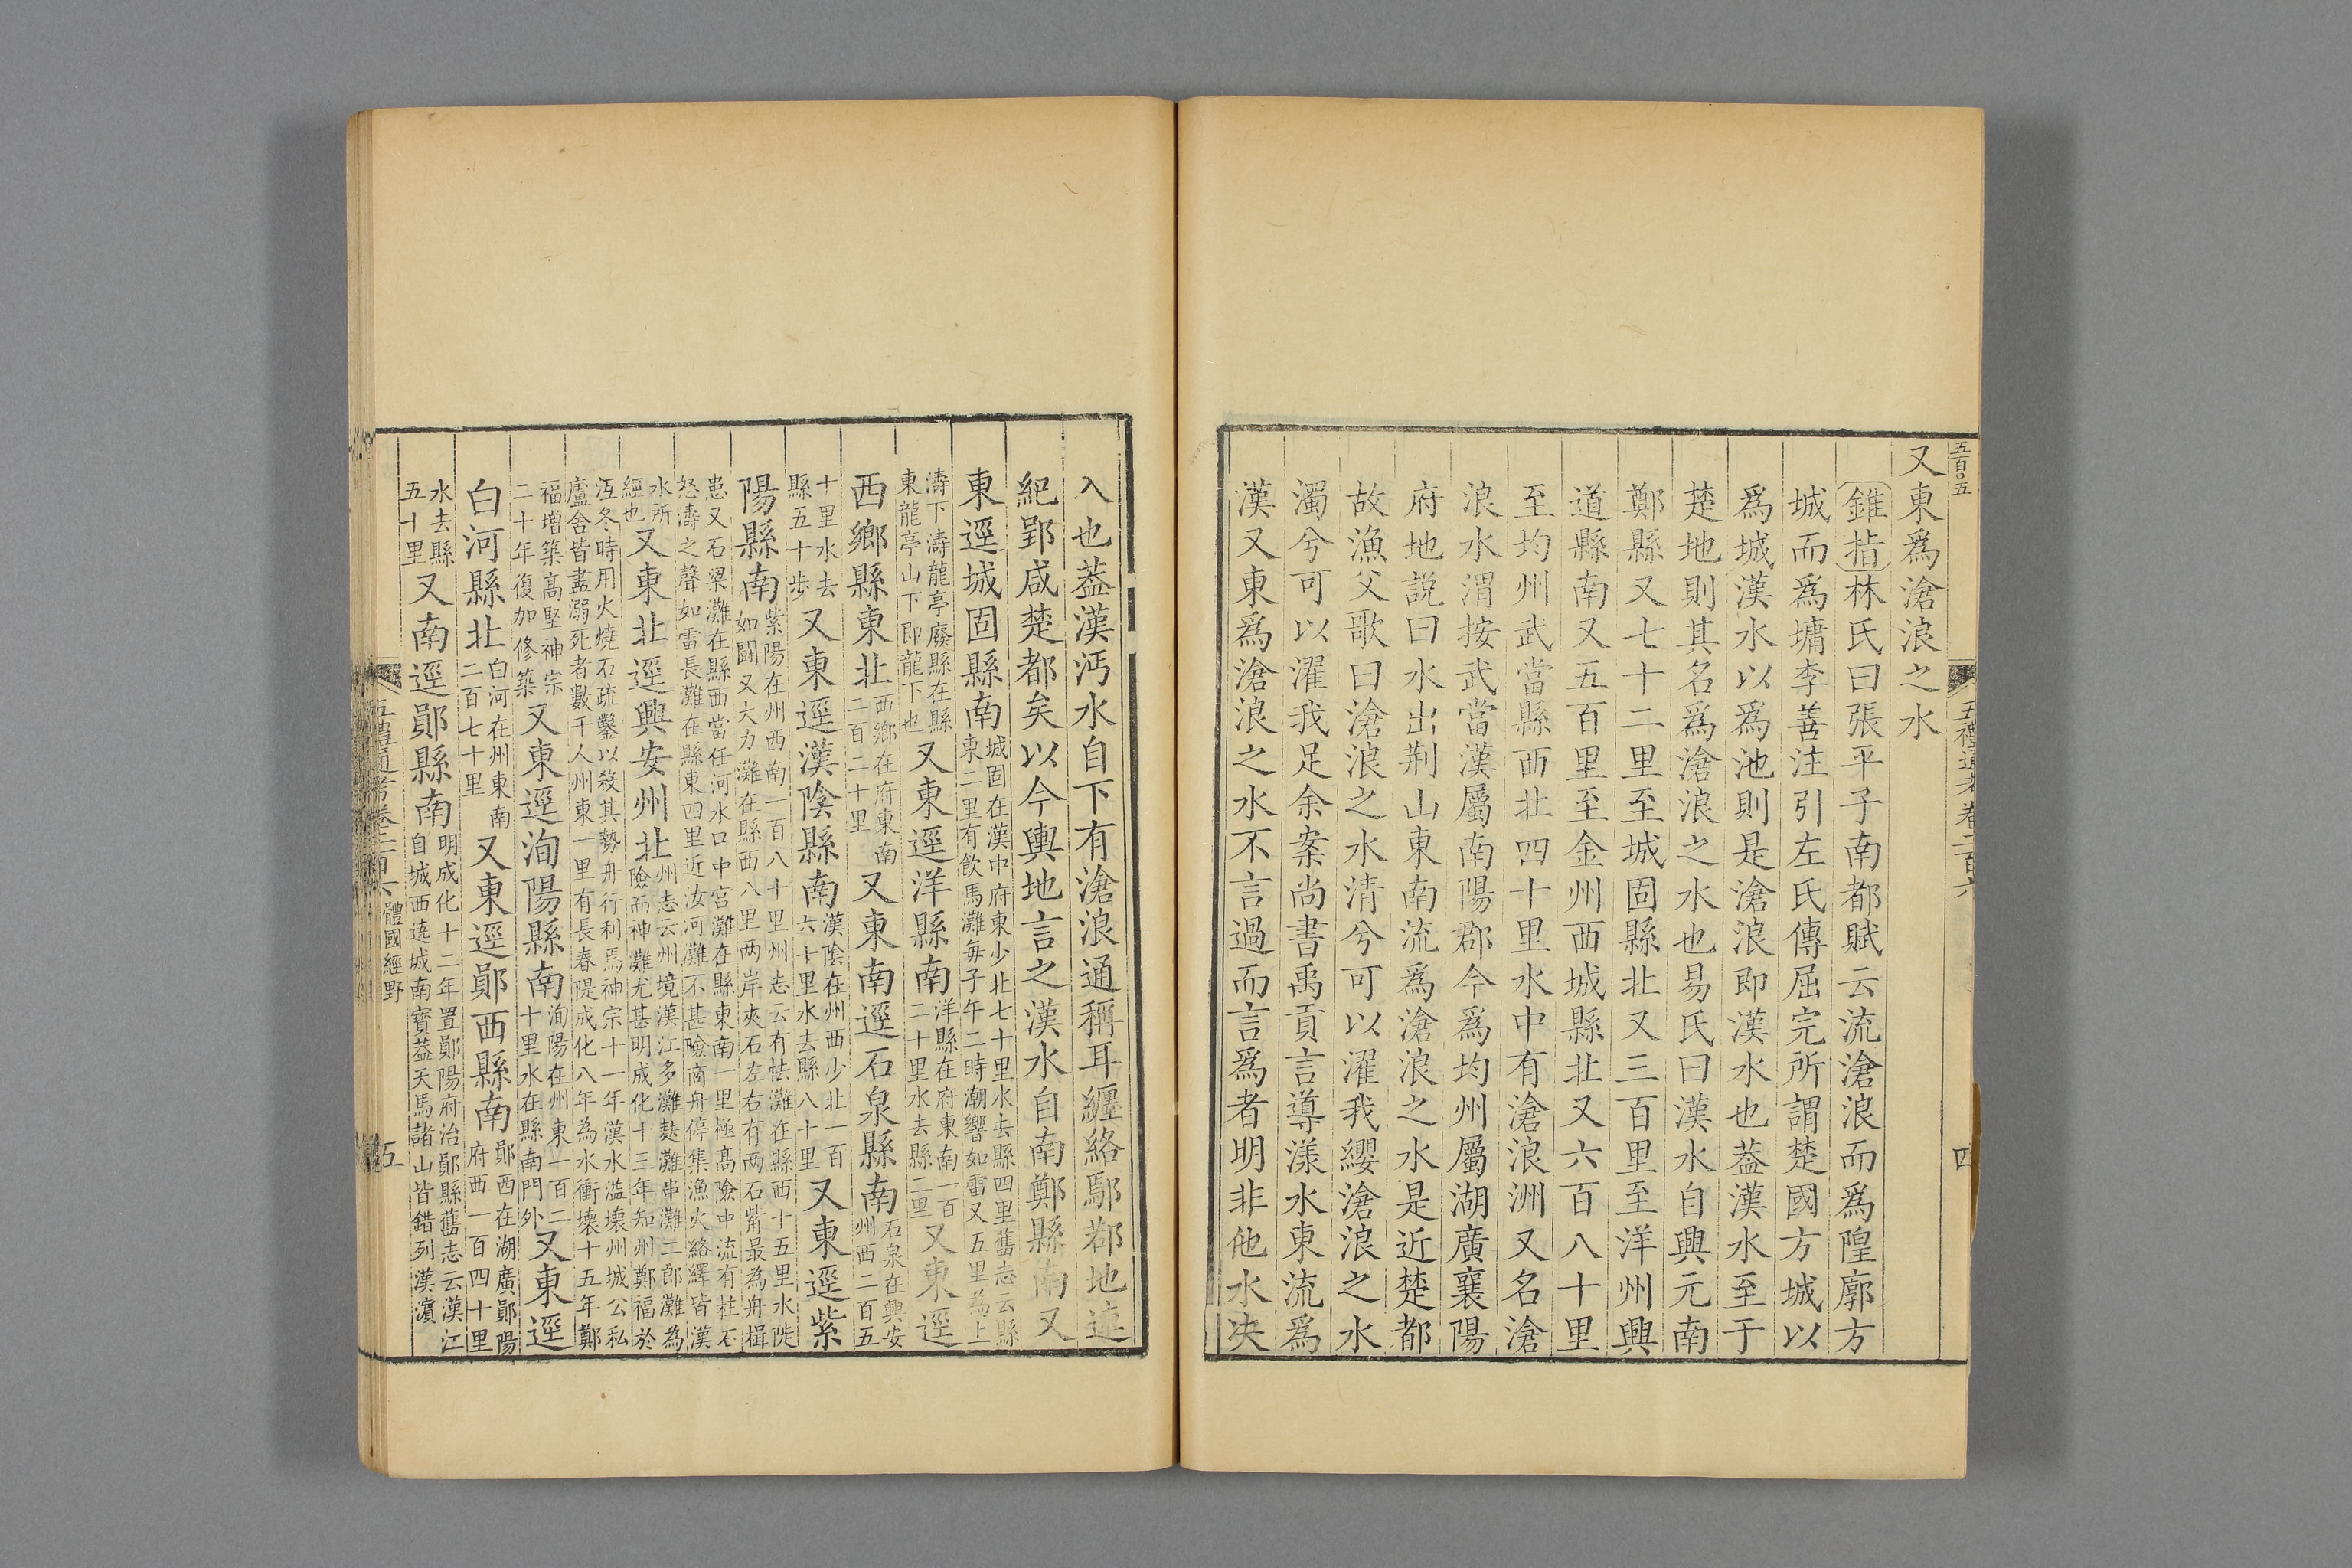 五百〇五
五禮通考卷二百六
四
又東爲滄浪之水
錐指林氏曰張平子南都賦云流滄浪而爲隍廓方
城而爲墉李善注引左氏傳屈完所謂楚國方城以
爲城漢水以爲池則是滄浪即漢水也葢漢水至于
楚地則其名爲滄浪之水也易氏曰漢水自興元南
鄭縣又七十二里至城固縣北又三百里至洋州興
道縣南又五百里至金州西城縣北又六百八十里
至均州武當縣西北四十里水中有滄浪洲又名滄
浪水渭按武當漢屬南陽郡今爲均州屬湖廣襄陽
府地説曰水出荆山東南流爲滄浪之水是近楚都
故漁父歌曰滄浪之水清兮可以濯我纓滄浪之水
濁兮可以濯我足余案尚書禹貢言導漾水東流爲
漢又東爲滄浪之水不言過而言爲者明非他水决
入也葢漢沔水自下有滄浪通稱耳纒絡鄢郡地連
紀郢咸楚都矣以今輿地言之漢水自南鄭縣南又
東逕城固縣南城固在漢中府東少北七十里水去縣四里舊志云縣
東二里有飲馬灘每子午二時潮響如雷又五里爲上
濤下濤龍亭廢縣在縣
東龍亭山下即龍下也又東逕洋縣南洋縣在府東南一百
二十里水去縣二里又東逕
西鄉縣東北西鄉在府東南
二百二十里又東南逕石泉縣南石泉在興安
州西二百五
十里水去
縣五十步又東逕漢陰縣南漢陰在州西少北一百
六十里水去縣八十里又東逕紫
陽縣南紫陽在州西南一百八十里州志云有怯灘在縣西十五里水陡
如闘又大力灘在縣西八里两岸夾石左右有两石觜最為舟楫
患又石梁灘在縣西當任河水口中宮灘在縣東南一里極高險中流有柱石
怒濤之聲如雷長灘在縣東四里近汝河灘不甚險商舟停集漁火絡繹皆漢
水所
經也又東北逕興安州北州志云州境漢江多灘㚄灘串灘二郎灘為
險而神灘尤甚明成化十三年知州鄭福於
沍冬時用火燒石疏鑿以殺其勢舟行利焉神宗十一年漢水溢壞州城公私
廬舍皆盡溺死者數千人州東一里有長春隄成化八年為水衝壊十五年鄭
福增築高堅神宗
二十年復加修築又東逕洵陽縣南洵陽在州東一百二
十里水在縣南門外又東逕
白河縣北白河在州東南
二百七十里又東逕鄖西縣南鄖西在湖廣鄖陽
府西一百四十里
水去縣
五十里又南逕鄖縣南明成化十二年置鄖陽府治鄖縣舊志云漢江
自城西遶城南寶葢天馬諸山皆錯列漢濵
五禮通考卷二百六 體國經野
五